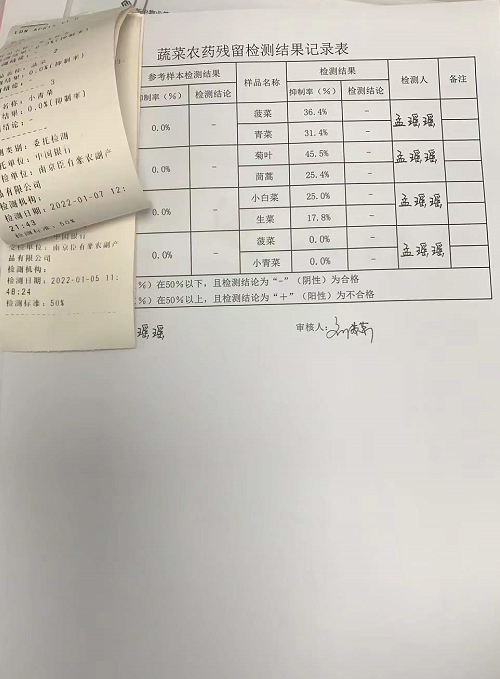 蔬菜农药残留检测结果记录表
参考样本检测结果 样品名称 检测结果 检测人 备注
抑制率（%） 检测结论 抑制率（%） 检测结论
0.0% － 菠菜 36.4% － 孟瑶瑶
青菜 31.4% －
0.0% － 菊叶 45.5% － 孟瑶瑶
茼蒿 25.4% －
0.0% － 小白菜 25.0% － 孟瑶瑶
生菜 17.8% －
0.0% － 菠菜 0.0% － 孟瑶瑶
小青菜 0.0% －
%）在50%以下，且检测结论为“-”（阴性）为合格
%）在50%以上，且检测结论为“＋”（阳性）为不合格
瑶瑶 审核人：
2
0.0%(抑制率)
3
名称: 小青菜
结果: 0.0%(抑制率)
结论: -
测类别: 委托检测
托单位: 中国银行
检单位: 南京臣有象农副产
品有限公司
检测机构:
检测日期: 2022-01-07 12:
21:43
检测标准: 50%
中国银行
受检单位: 南京臣有象农副产
品有限公司
检测机构:
检测日期: 2022-01-05 11:
48:24
检测标准: 50%